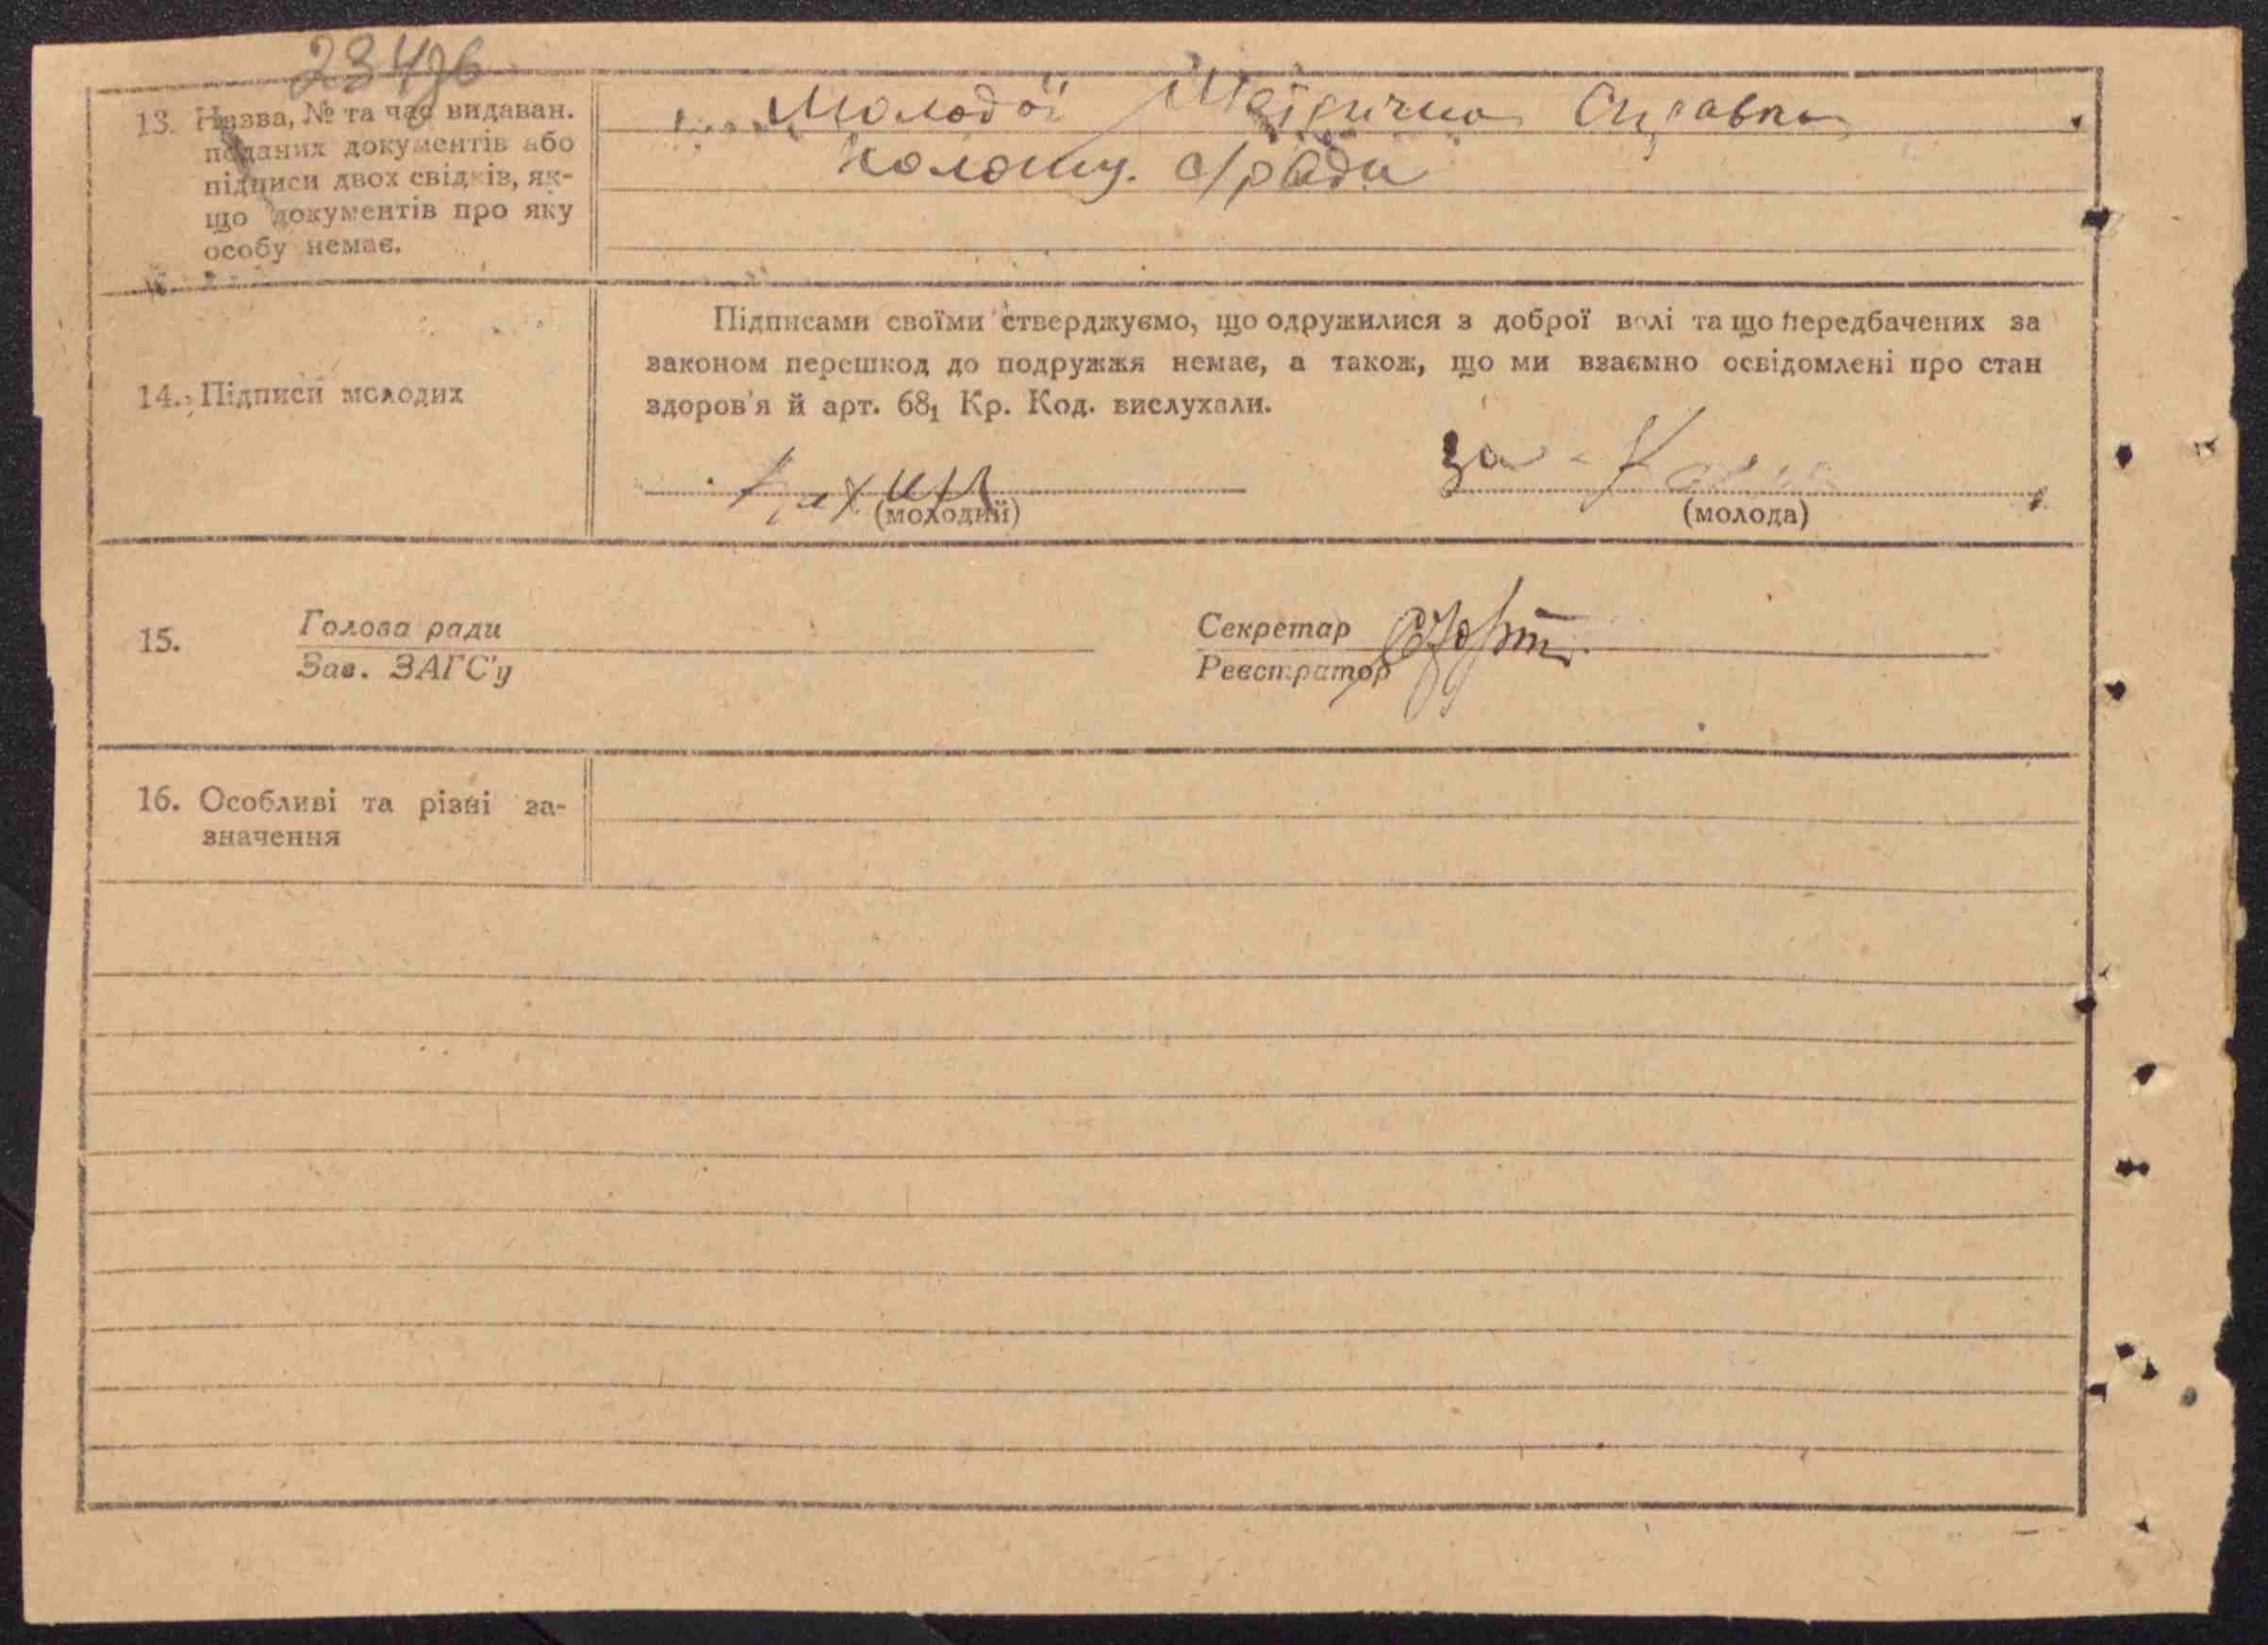 23476
13. Назва, № та час видаван.
поданих документів або
підписи двох свідків, як-
що документів про яку
особу немає.
Молодої Медична Справка
с/ради
Підписами своїми стверджуємо, що одружилися з доброї волі та що передбачених за
законом перешкод до подружжя немає, а також, що ми взаємно освідомлені про стан
здоров'я й арт. 68₁ Кр. Код. вислухали.
14. Підписи молодих
за
(молодий) (молода)
15. Голова ради Секретар
Зав. ЗАГС'у Реєстратор
16. Особливі та різні за-
значення